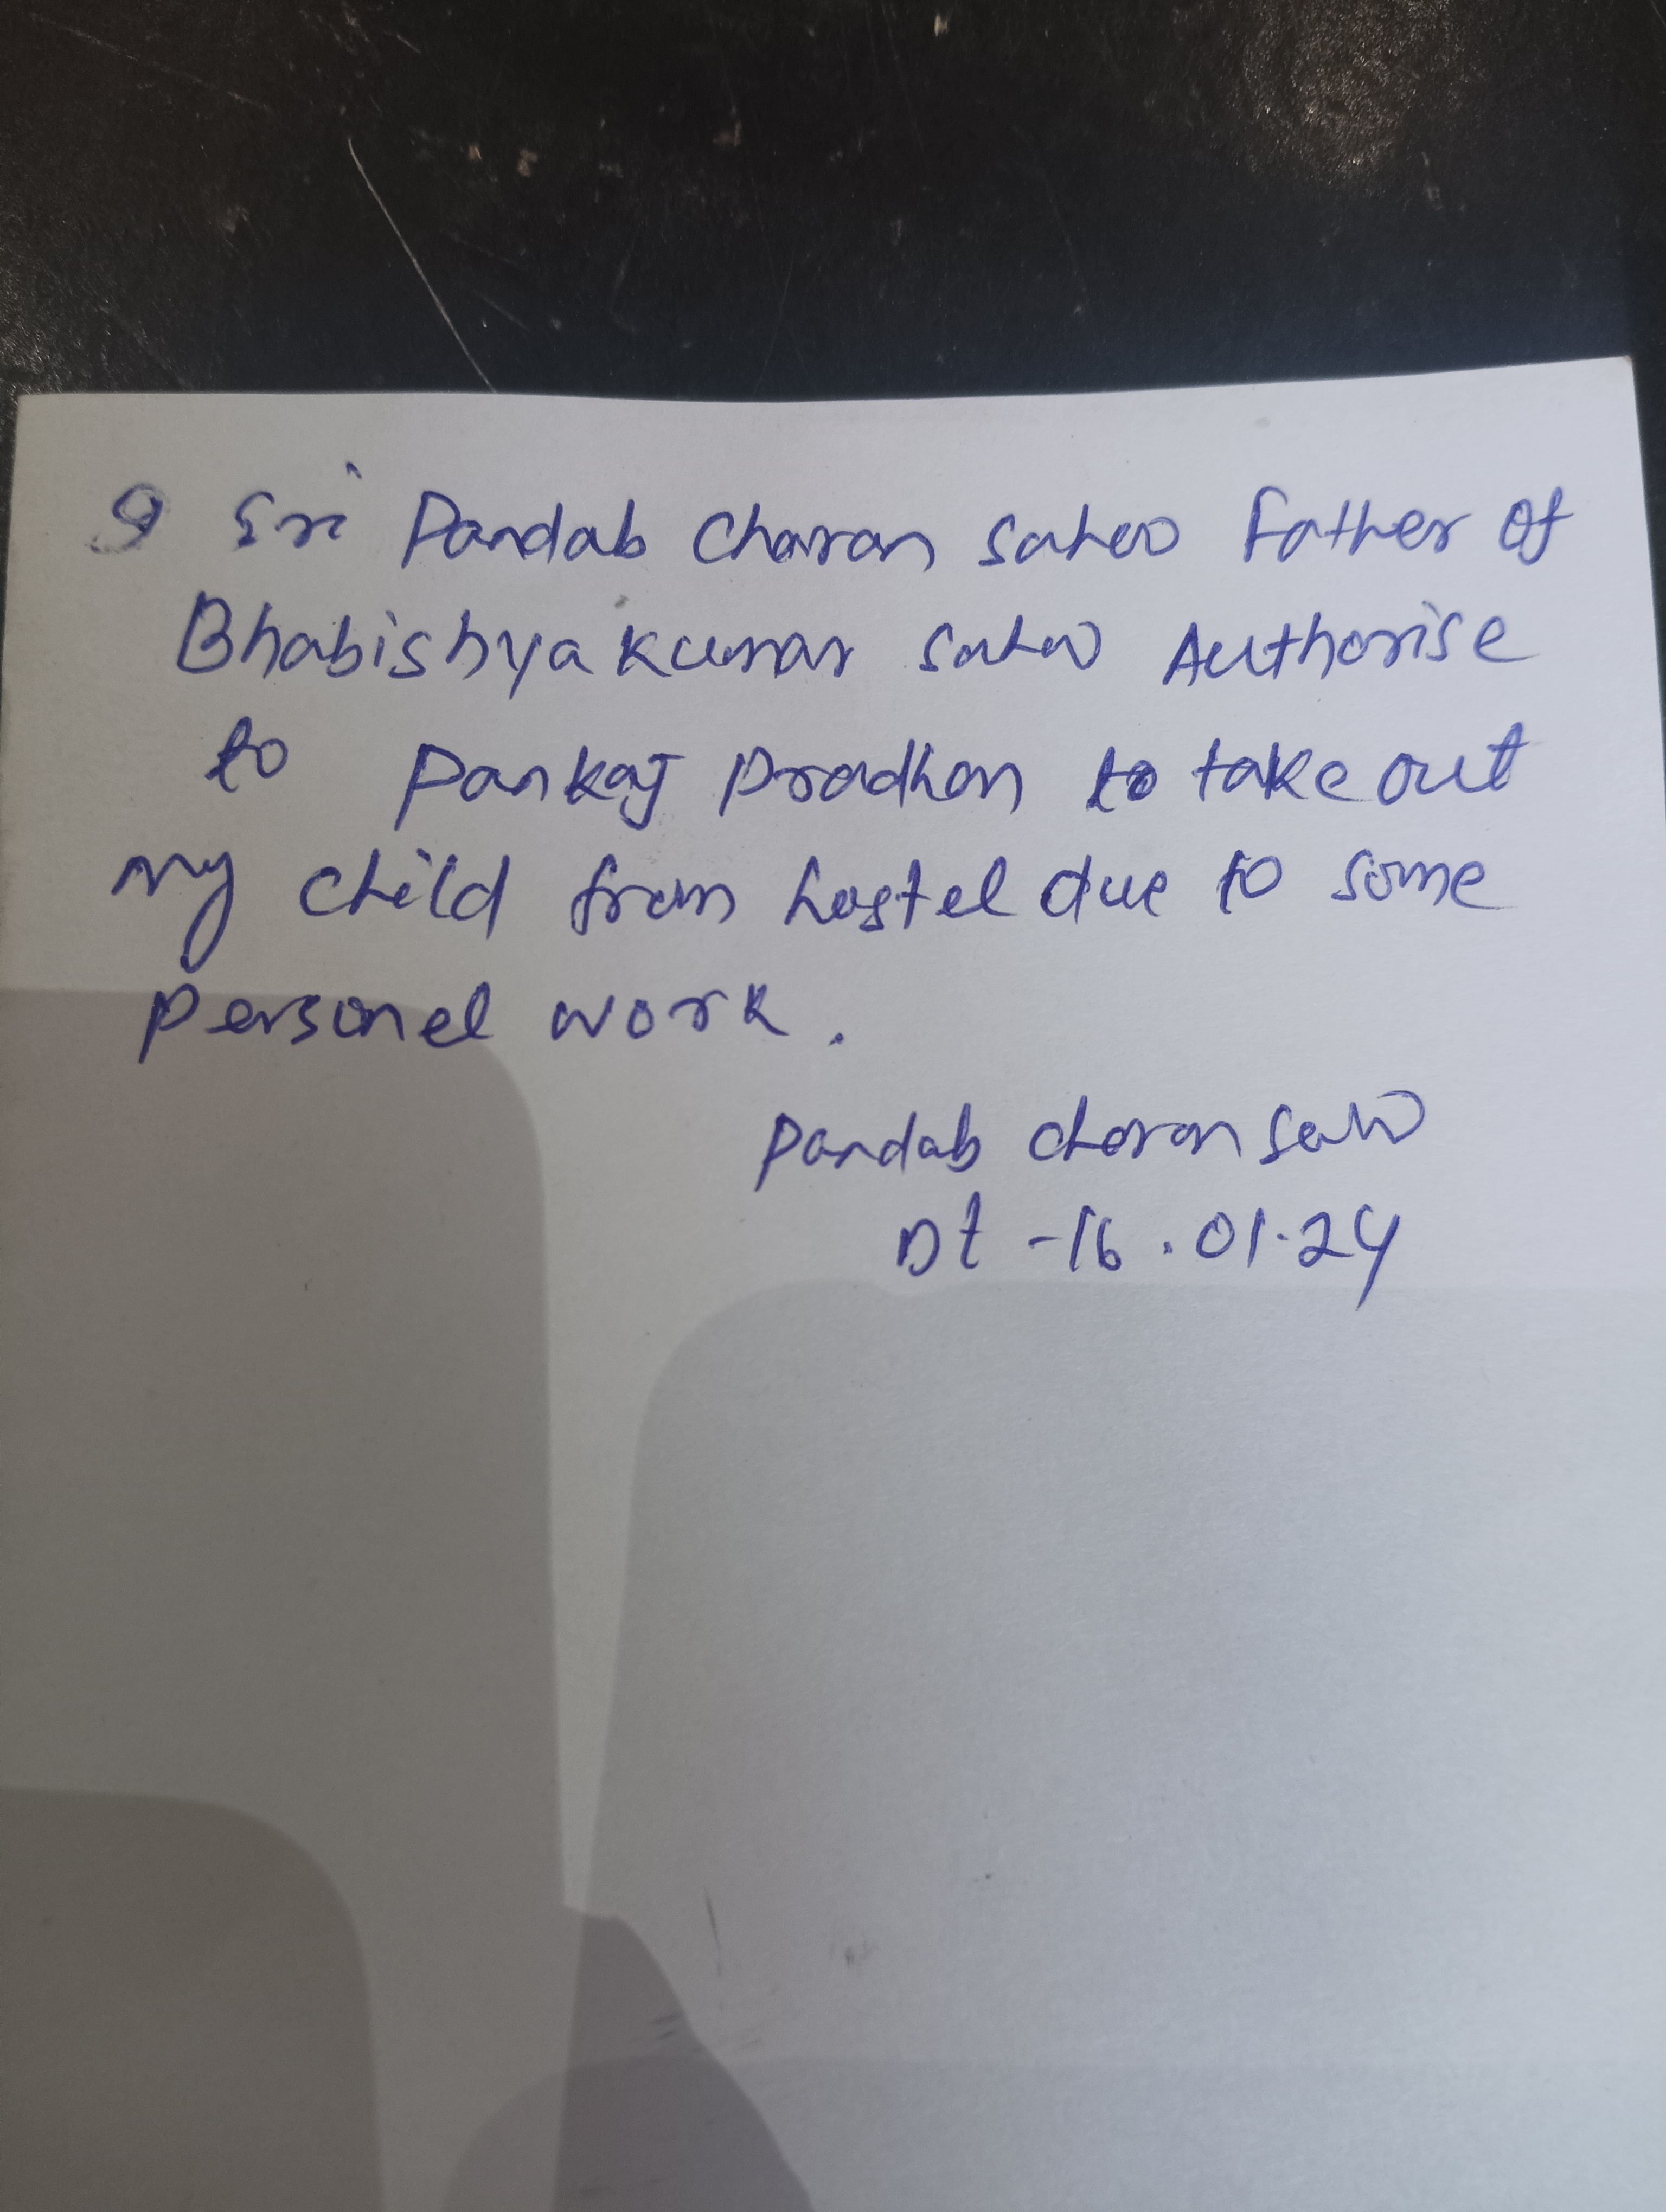 I Sri Pandab Charan Sahoo Father of
Bhabishya Kumar Sahoo Authorise
to Pankaj Pradhan to take out
my child from hostel due to some
personel work.
Pandab Charan Sahoo
Dt -16.01.24